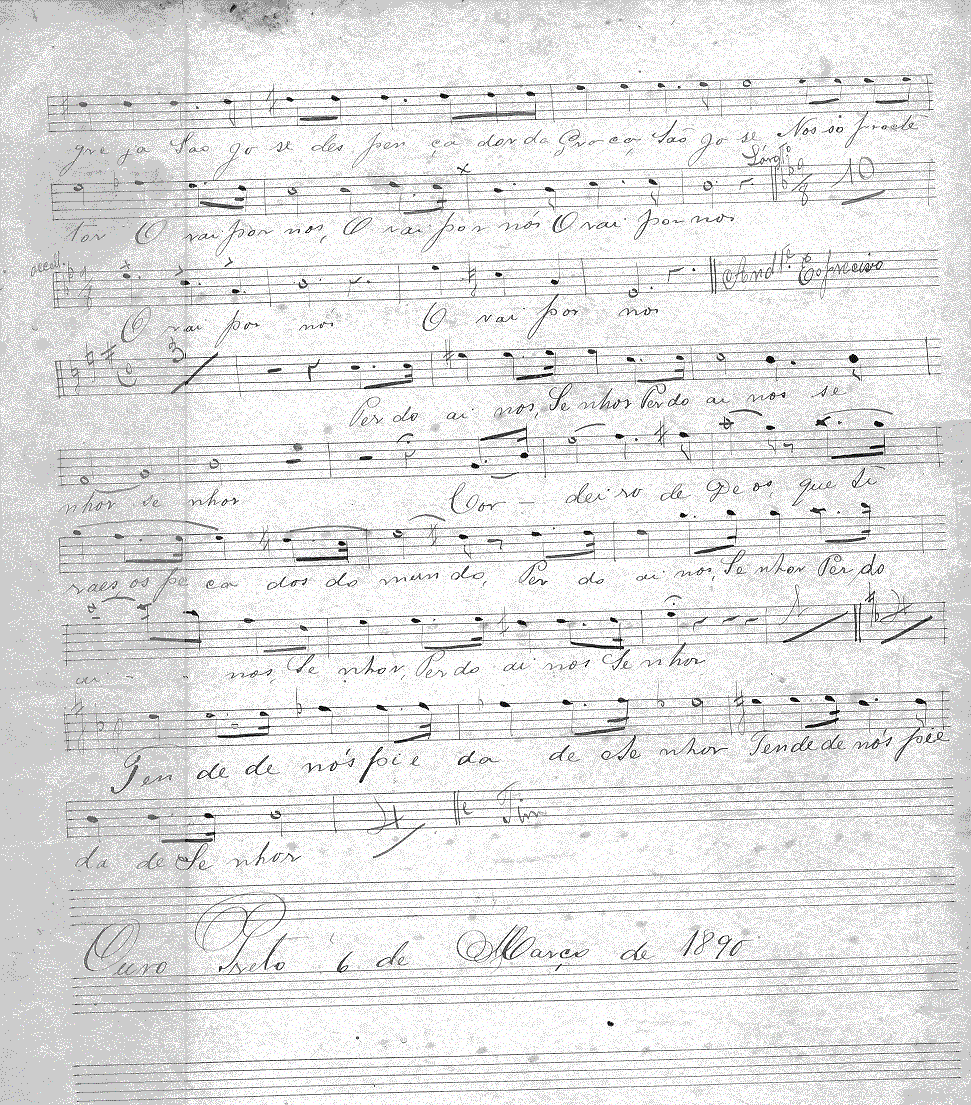 gre ja Sao Jo se des pen ça dor da Gra ça, Sao Jo se Nos so prote
Largtº
tor O rai por nos, O rai por nós O rai por nos
10
accell.
O rai por nos O rai por nos
Andte Expreсivo
3
Perdo ai nos, Se nhor Perdo ai nos se
nhor se nhor Cor - dei ro de De os, que ti
raes, os pe ca dos do mun do, Per do ai nos, Se nhor Per do
ai - - nos, Se nhor, Per do ai nos Se nhor
4
Ten de de nós pie da de Se nhor Ten de de nós pie
4 Fim
da de Se nhor
Ouro Preto 6 de Março de 1890